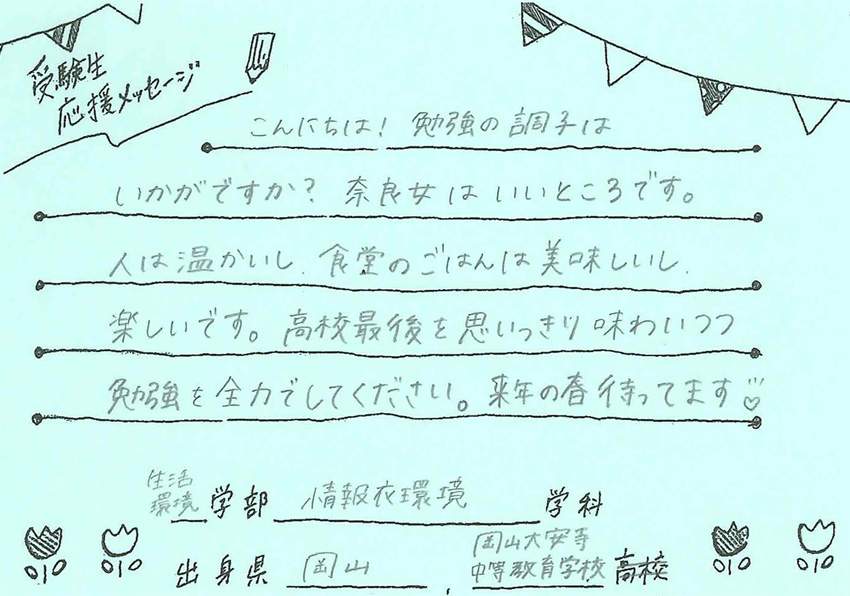 受験生
応援メッセージ
こんにちは！勉強の調子は
いかがですか？奈良女はいいところです。
人は温かいし、食堂のごはんは美味しいし、
楽しいです。高校最後を思いっきり味わいつつ
勉強を全力でしてください。来年の春待ってます
生活
環境学部 情報衣環境学科
出身県 岡山、岡山大安寺
中等教育学校高校